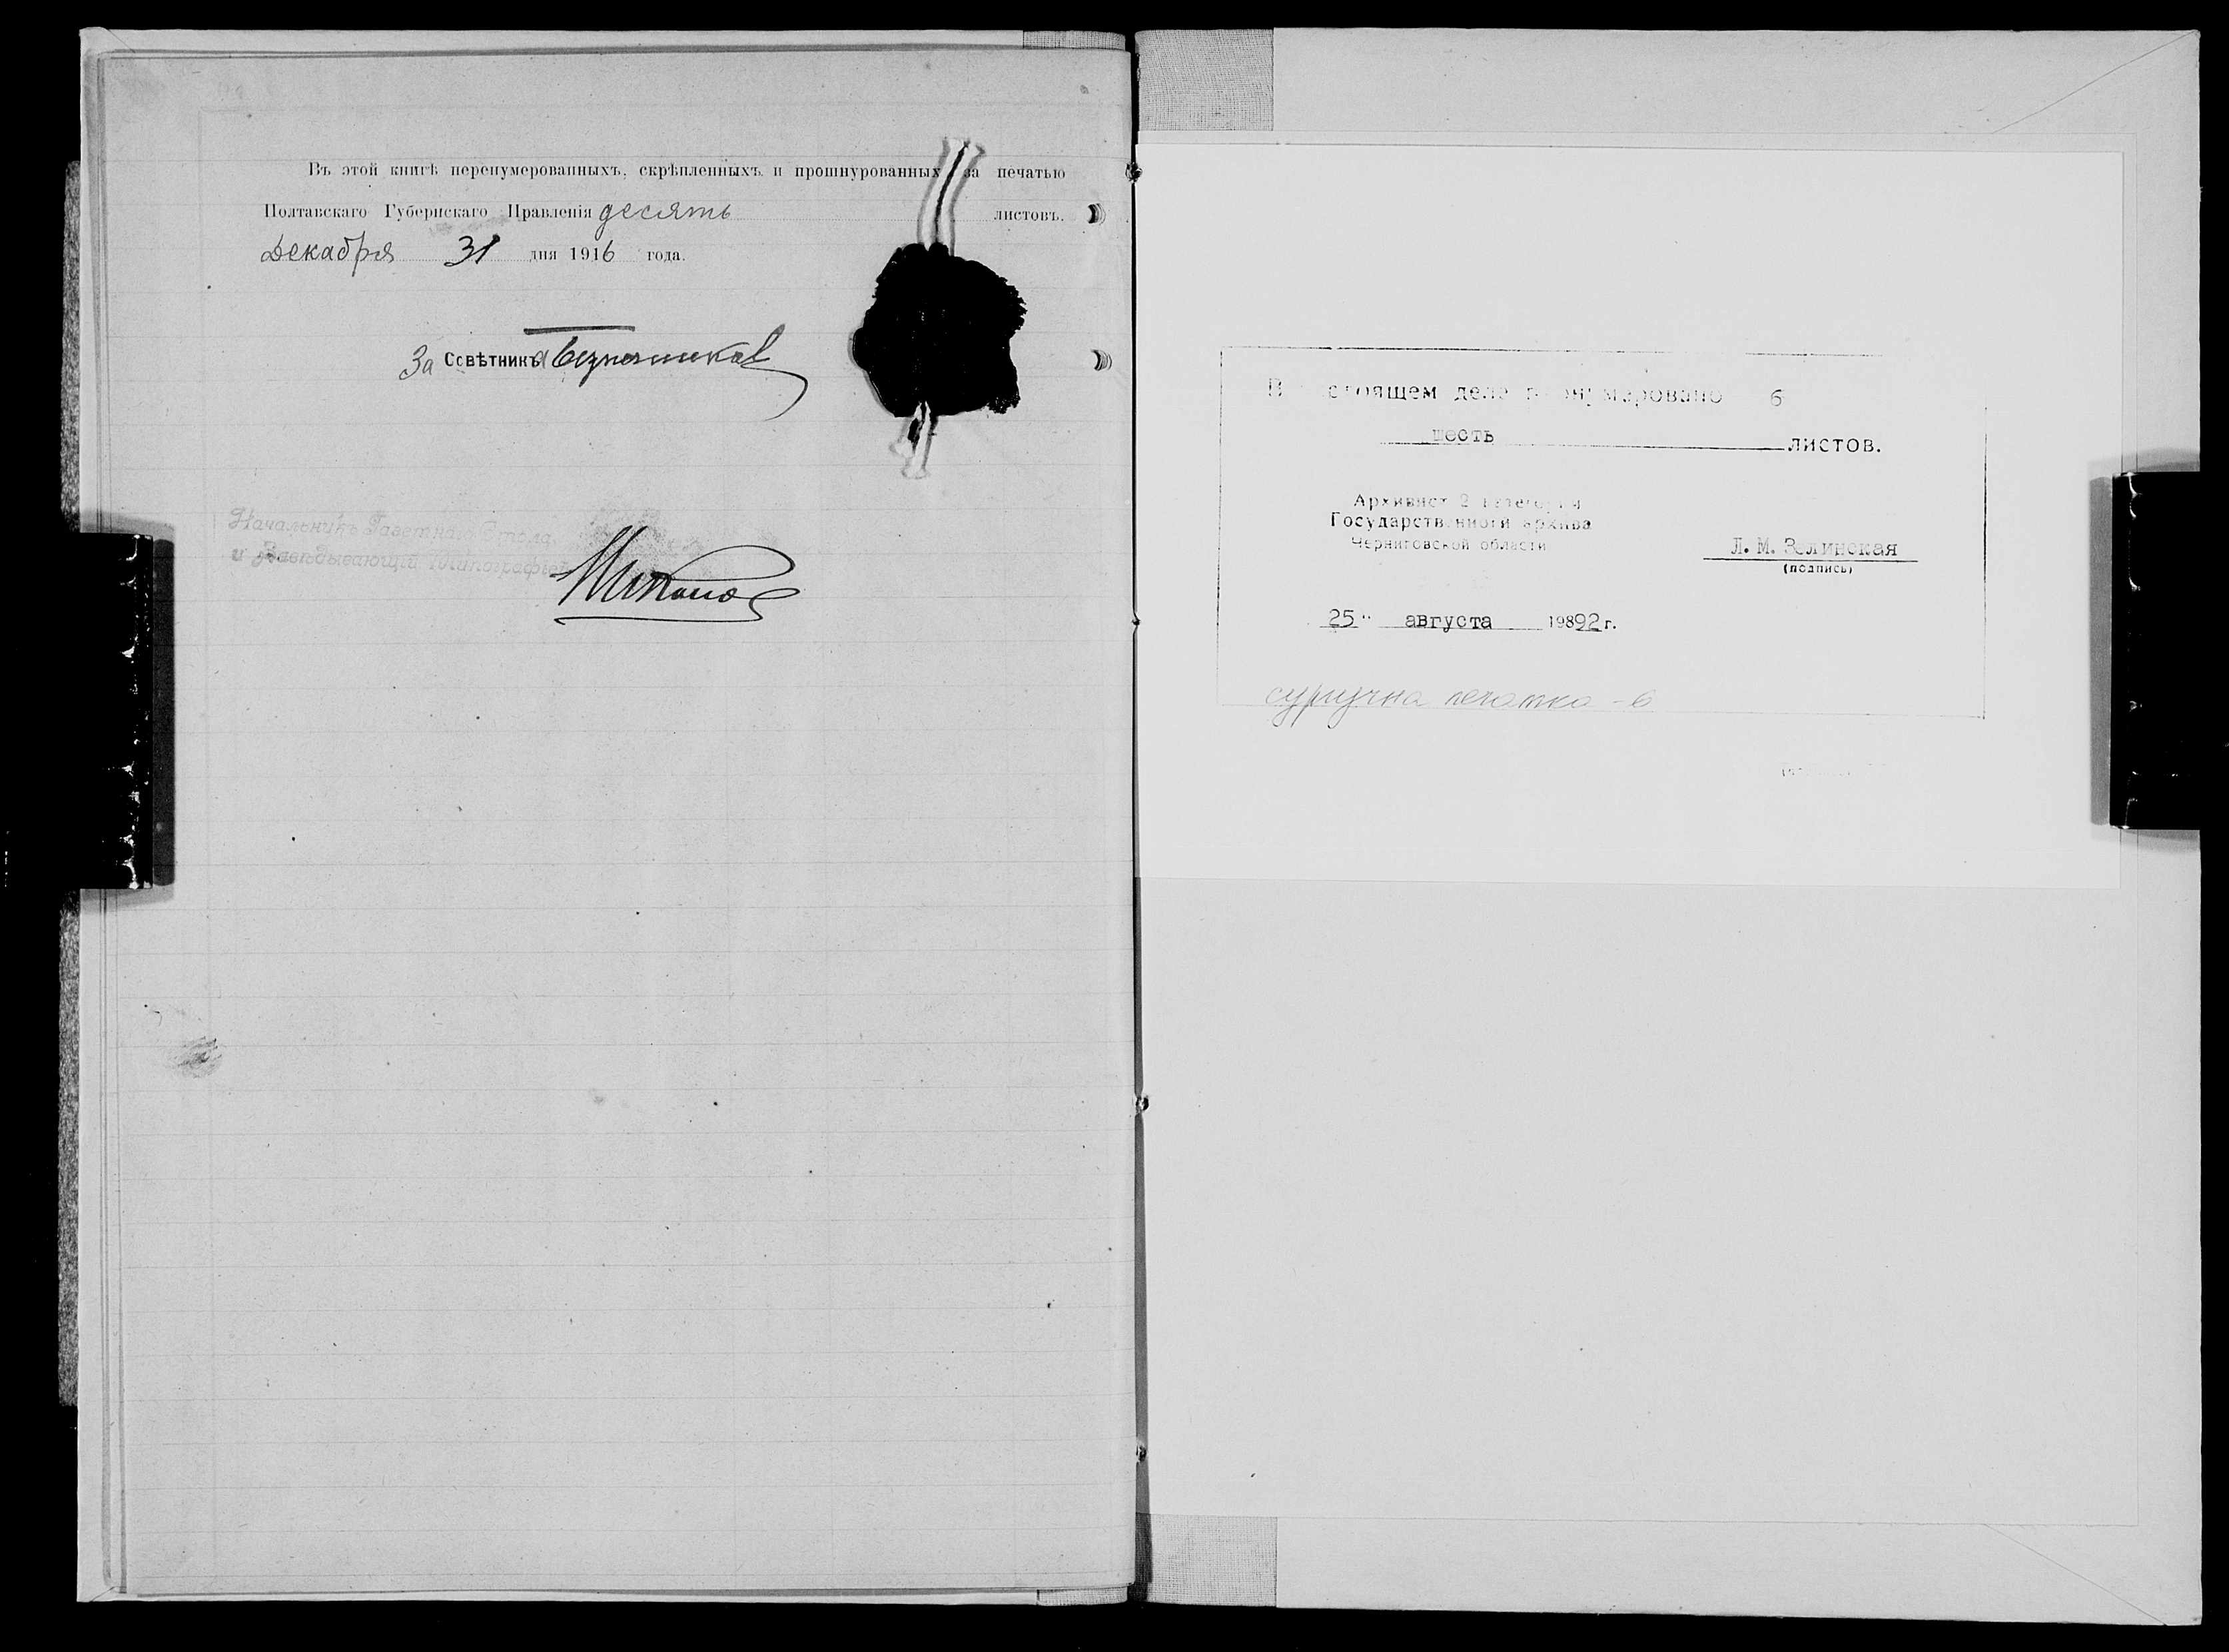 Въ этой книгѣ перенумерованныхъ, скрѣпленныхъ и прошнурованныхъ за печатью
Полтавскаго Губернскаго Правленія десять листовъ.
Декабря 31 дня 1916 года.
За Совѣтника
Начальникъ Газетнаго Стола
и Завѣдывающій Типографіей
В настоящем деле пронумеровано 6
шесть листов.
Архивист 2 категории
Государственного архива
Черниговской области
Л. М. Зелинская
(подпись)
25 " августа 19892 г.
сургучна печатка - 6